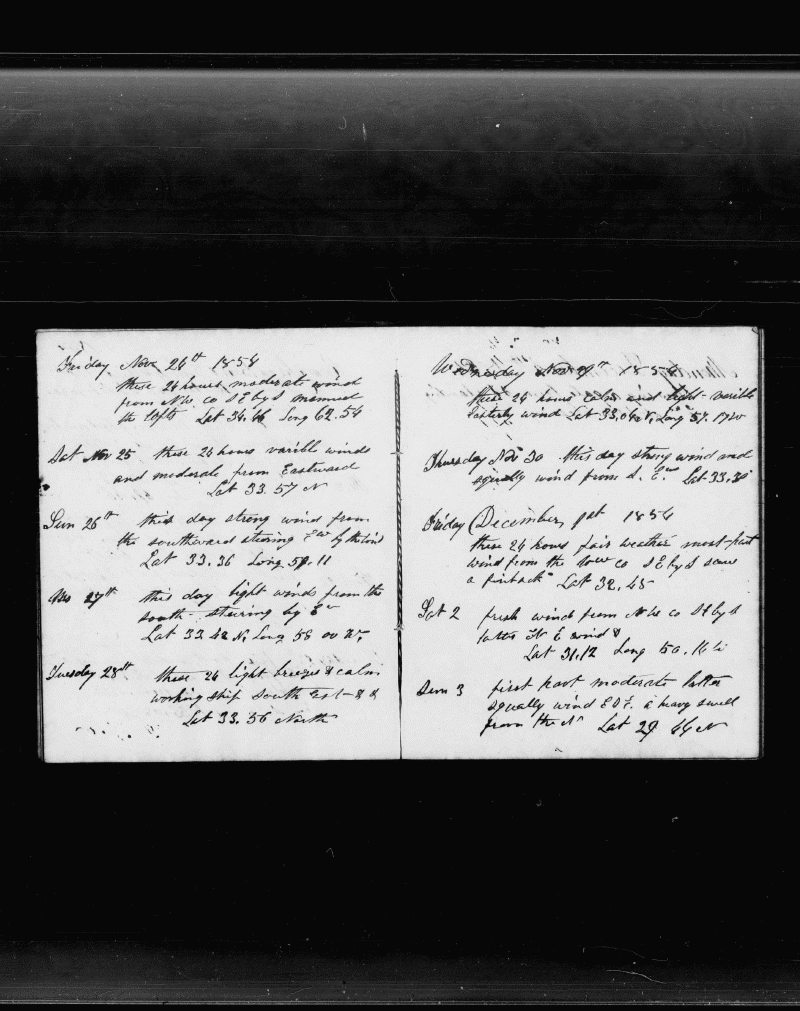 Friday Nov 24th 1854
these 24 hours moderate wind
from NW co SEbyS manned
the lofts Lat 34.46 Long 62.54
Sat Nov 25 these 24 hours varible winds
and moderate from Eastward
Lat 33.57 N
Sun 26th this day strong wind from
the southward steering Ew by the wind
Lat 33.36 Long 59.11
Mo 27th this day light winds from the
south - steering by Ew
Lat 33 42 N, Long 58 00 W,
Tuesday 28th these 24 light breezes & calm
working ship South East - & &
Lat 33.56 North
Wednesday Nov 29th 1854
these 24 hours calm and light - varible
Easterly wind Lat 33.04 N, Long 57.
Thursday Nov 30 this day strong wind and
squally wind from S. Ew Lat 33.30
Friday (December 1st 1854
these 24 hours fair weather most part
wind from the co SEbyS saw
a finback Lat 32.45
Sat 2 fresh wind from NW co SEbyS
latter E wind &
Lat 31.12 Long 50.16
Sun 3 first part moderate latter
squally wind a heavy swell
from the N Lat 29 44 N